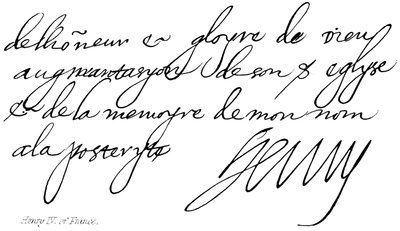 delhoñeur & gloyre de dieu
augmantasyon de son eglyse
& de la memoyre de mon nom
a la posteryte
Henry
Henry IV. of France.